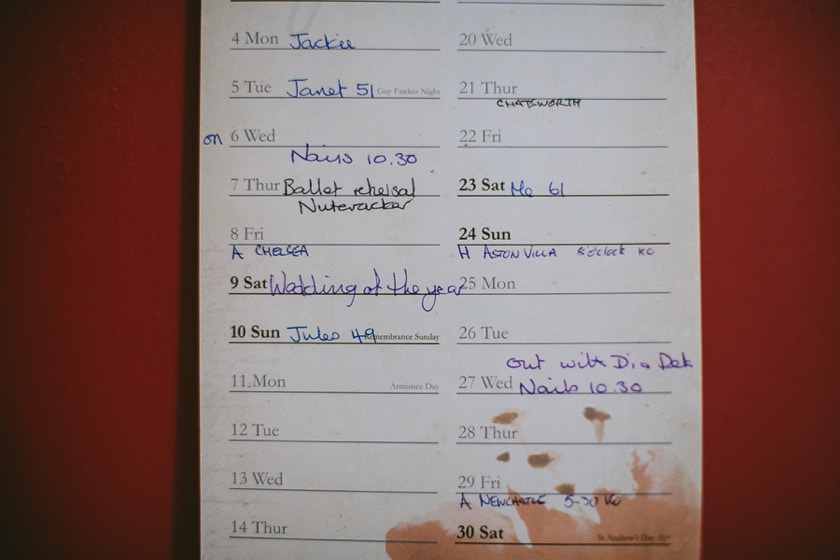 4 Mon Jackie
5 Tue Janet 51 Guy Fawkes Night
on 6 Wed
Nails 10.30
7 Thur Ballet rehersal
Nutcracker
8 Fri
A CHELSEA
9 Sat Wedding of the year
10 Sun Jules 49 Remembrance Sunday
11 Mon Armistice Day
12 Tue
13 Wed
14 Thur
20 Wed
21 Thur
CHATSWORTH
22 Fri
23 Sat Me 61
24 Sun
H ASTON VILLA o'clock KO
25 Mon
26 Tue
out with Di & Dek
27 Wed Nails 10.30
28 Thur
29 Fri
A NEWCASTLE 5-30 KO
30 Sat St Andrew's Day